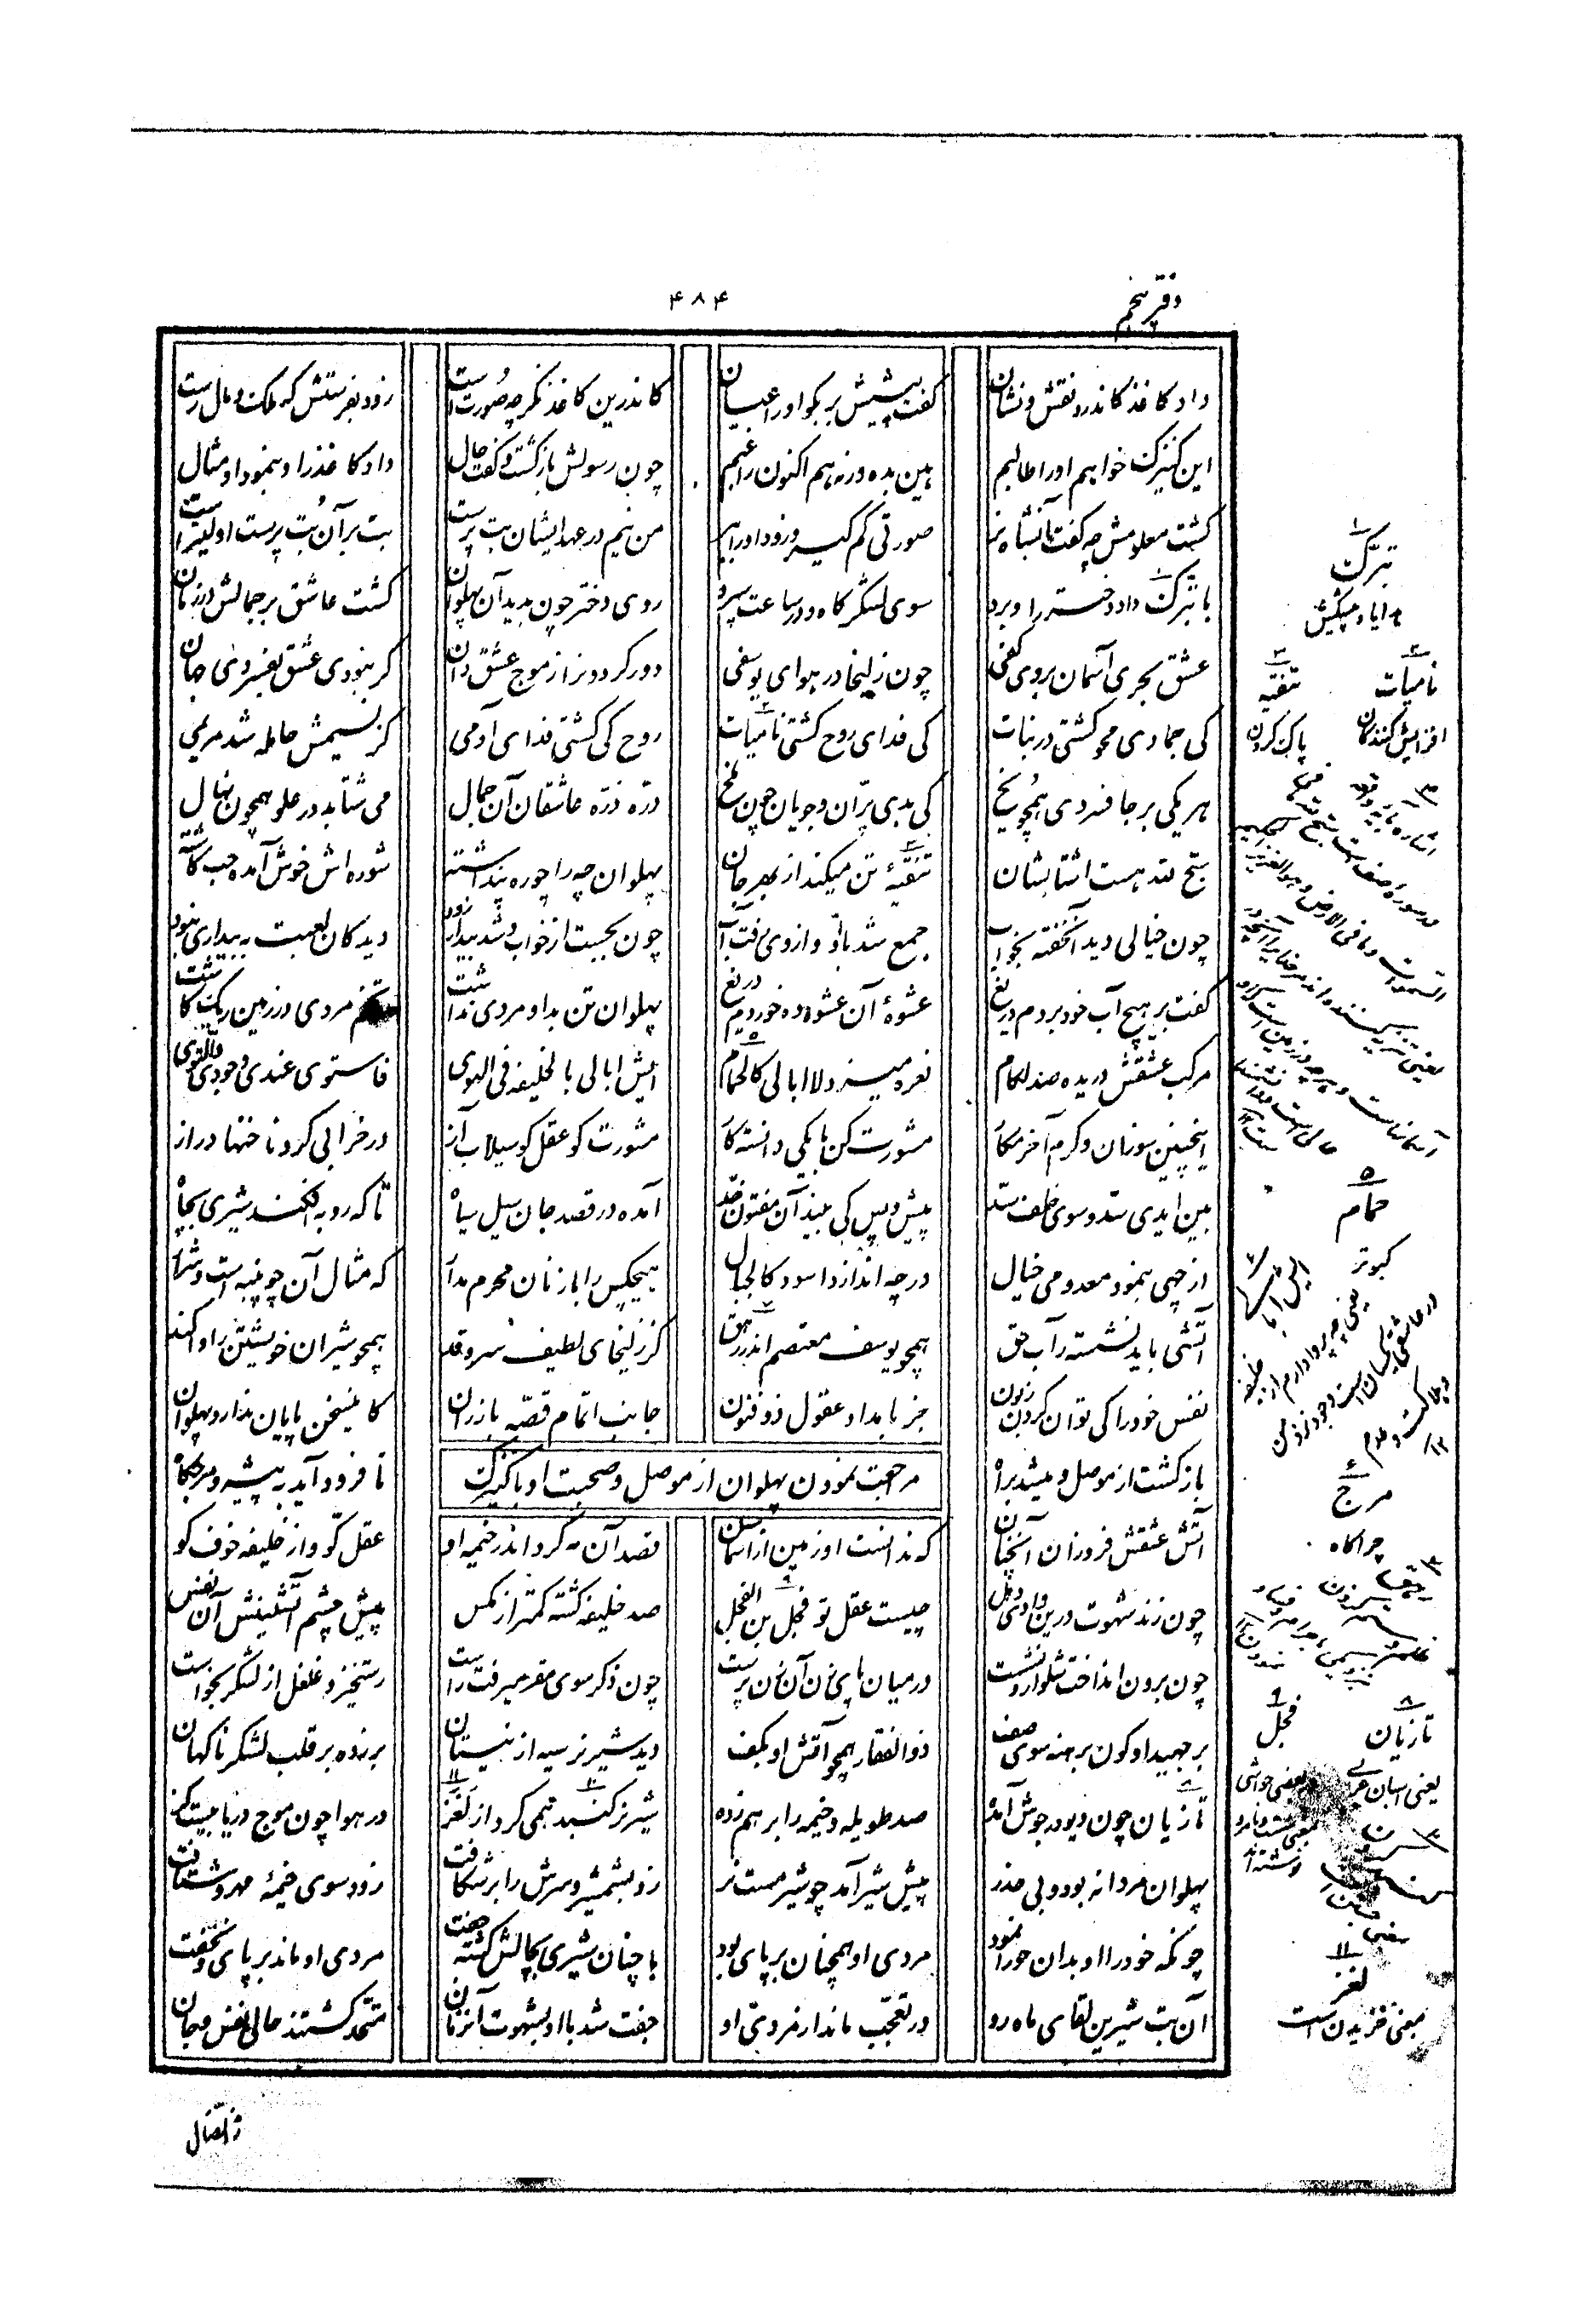 دفتر پنجم
۴۸۴
داد کاغذ کاندرو نقش و نشان گفت پیشش بر بگو او را عیان کاندرین کاغذ نگر چه صورت است زود بفرستش که ملک و مال رست
این کنیزک خواهم او را طالبم هین بده ورنه هم اکنون غالبم چون رسولش بازگشت و گفت حال داد کاغذ را و بنمود او مثال
گشت معلومش چه گفت آنشاه نر صورتی کم گیر و زود او را ببر من نیم در عهد ایشان بت پرست بت بر آن بت پرست اولیتر است
با تبرک داد دختر را و برد سوی لشگرگاه و در ساعت سپرد روی دختر چون بدید آن پهلوان گشت عاشق بر جمالش در زمان
عشق بحری آسمان بروی کفی چون زلیخا در هوای یوسفی دور گردونرا ز موج عشق دان گر نبودی عشق بفسردی جهان
کی جمادی محو گشتی در نبات کی فدای روح گشتی نامیات روح کی گشتی فدای آدمی کز نسیمش حامله شد مریمی
هر یکی بر جا فسردی همچو یخ کی بدی پرّان و جویان چون ملخ ذرّه ذرّه عاشقان آن جمال می شتابد در علو همچون نهال
سبّح للّه هست اشتابشان تنقیهٔ تن میکند از بهر جان پهلوان چه را چو ره پنداشته شوره اش خوش آمده حب کاشته
چون خیالی دید آنخفته بخواب جمع شد با او و از وی رفت آب چون بجست از خواب و شد بیدار زود دید کان لعبت به بیداری نبود
گفت بر هیچ آب خود بردم دریغ عشوهٔ آن عشوه ده خوردم دریغ پهلوان تن بد او مردی نداشت تخم مردی در زمین ریگ کاشت
مرکب عشقش دریده صد لگام نعره میزد لا ابالی کالحمام ایش ابالی بالخلیفه فی الهوی فاستوی عندی وجودی و التوی
اینچنین سوزان و گرم آخر مکار مشورت کن با یکی دانسته کار مشورت کو عقل کو سیلاب آز در خرابی کرد ناخنها دراز
بین ایدی سد و سوی خلف سد پیش و پس کی بیند آن مفتون خد آمده در قصد جان سیل سیاه تا که روبه افکند شیری بچاه
از چهی بنمود معدومی خیال در چه اندازد اسود کالجبال هیچکس را با زنان محرم مدار که مثال آن چو پنبه است و شرار
آتشی باید نشسته ز آب حق همچو یوسف معتصم اندر رهق کز زلیخای لطیف سرو قد همچو شیران خویشتن را واکشد
نفس خود را کی توان کردن زبون جز بامداد عقول ذو فنون جانب اتمام قصّه باز ران کاین سخن پایان ندارد پهلوان
بازگشت از موصل و میشد براه تا فرود آید به بیشه و مرجگاه
مرجعت نمودن پهلوان از موصل و صحبت او با کنیزک
آتش عشقش فروزان آنچنان که ندانست او زمین از آسمان قصد آن مه کرد اندر خیمه او عقل کو و از خلیفه خوف کو
چون زند شهوت درین وادی دهل چیست عقل تو فجل بن الفجل صد خلیفه گشته کمتر از مگس پیش چشم آتشینش آن نفس
چون برون انداخت شلوار و نشست در میان پای زن آن زن پرست چون ذکر سوی مقر میرفت راست رستخیز و غلغل از لشکر بخواست
بر جهید او کون برهنه سوی صف ذوالفقار همچو آتش او بکف دید شیر نر سیه از نیستان بر زده بر قلب لشکر ناگهان
تازیان چون دیو در جوش آمده صد طویله و خیمه را بر هم زده شیر نر گنبد همی کرد از لغز در هوا چون موج دریا بیست گز
پهلوان مردانه بود و بی حذر پیش شیر آمد چو شیر مست نر زد بشمشیر و سرش را بر شکافت زود سوی خیمهٔ مهرو شتافت
چونکه خود را او بدان حورا نمود مردی او همچنان بر پای بود با چنان شیری بچالش گشته جفت مردی او ماند بر پای و نخفت
آن بت شیرین لقای ماه رو در تعجّب ماند از مردی او جفت شد با او بشهوت آنزمان متّحد گشتند حالی نفس و جان
۱ تبرّک
هدایا و پیشکش
۲ نامیات
افزایش کنندگان
۳ تنقیه
پاک کردن
۵ حمام
کبوتر
۶ مرج
چراگاه
۸ تازیان
یعنی اسبان عربی
۹ فجل
۱۱ لغز
بمعنی لغزیدن است